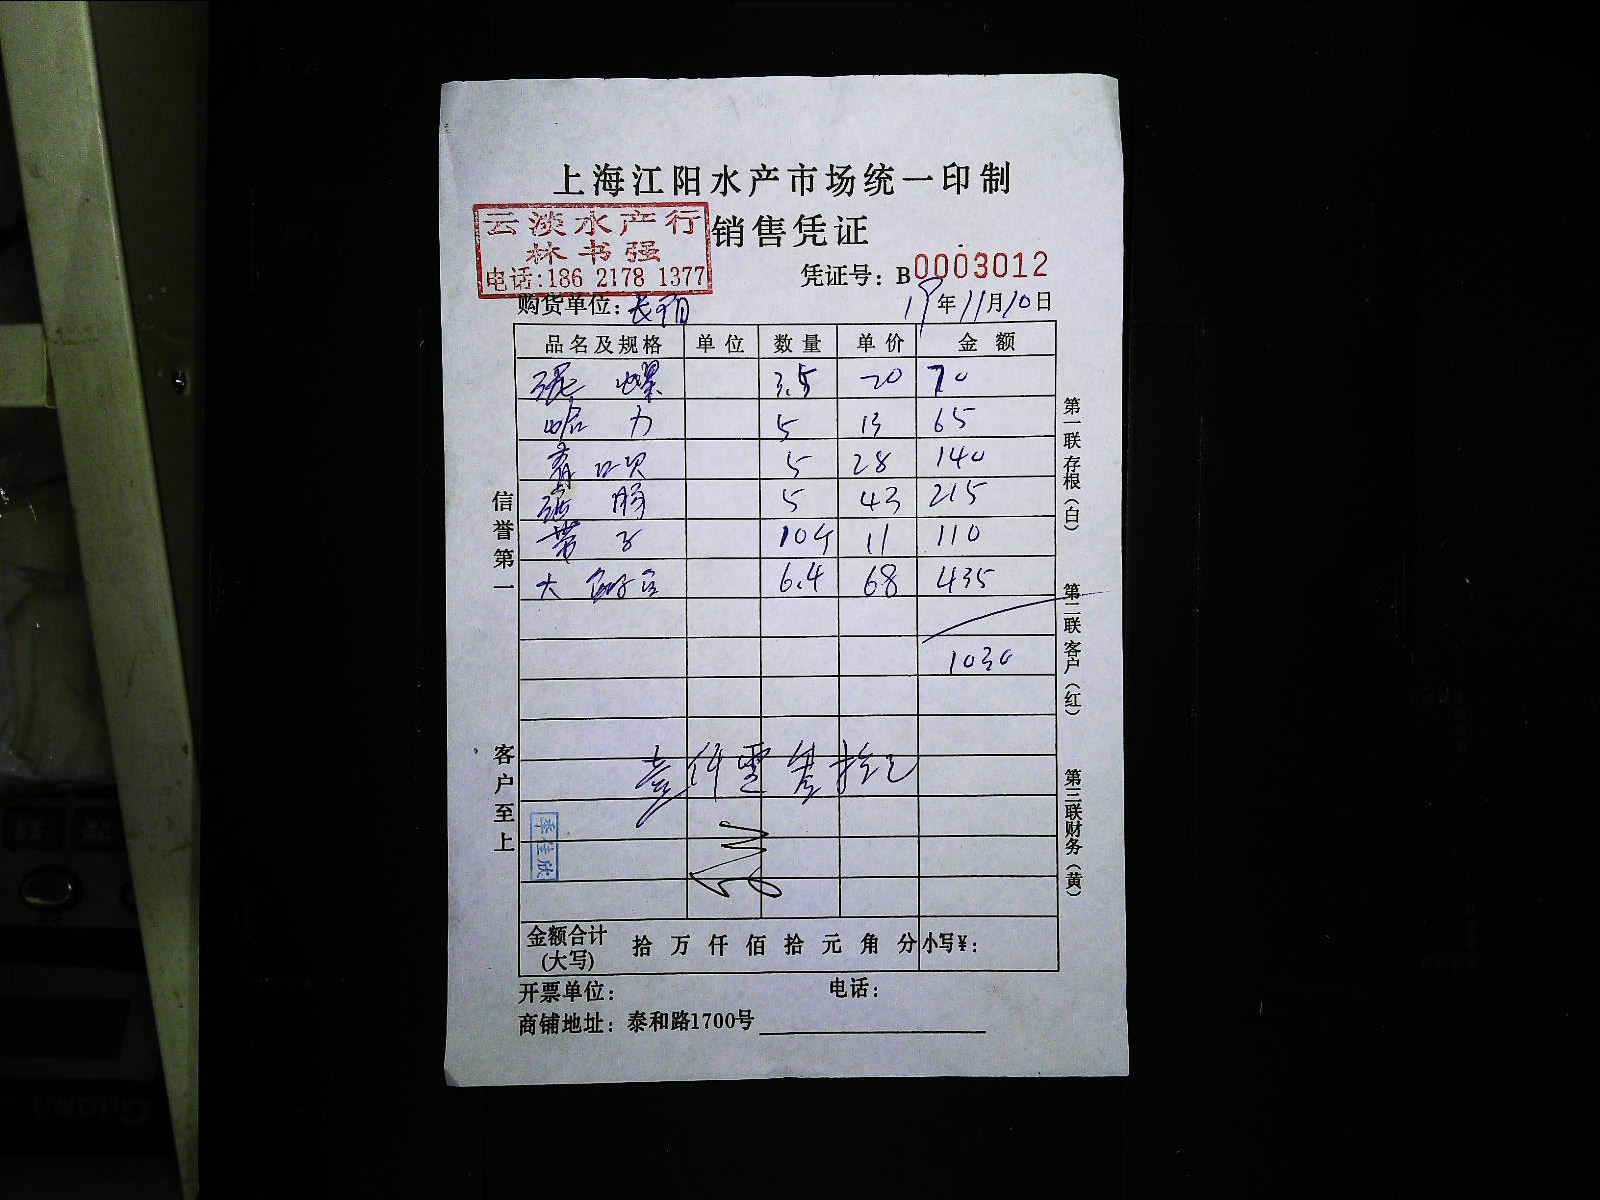 上海江阳水产市场统一印制
销售凭证
云淡水产行
林书强
电话:186 2178 1377
凭证号: B0003012
购货单位:
19年11月10日
品名及规格 单位 数量 单价 金额
泥螺 3.5 20 70
哈力 5 13 65
青口贝 5 28 140
5 43 215
带子 10个 11 110
大 6.4 68 435
1030
壹仟零叁拾元
李佳欣
金额合计(大写) 拾 万 仟 佰 拾 元 角 分 小写¥:
开票单位: 电话:
商铺地址: 泰和路1700号
信誉第一
客户至上
第一联 存根(白)
第二联 客户(红)
第三联 财务(黄)